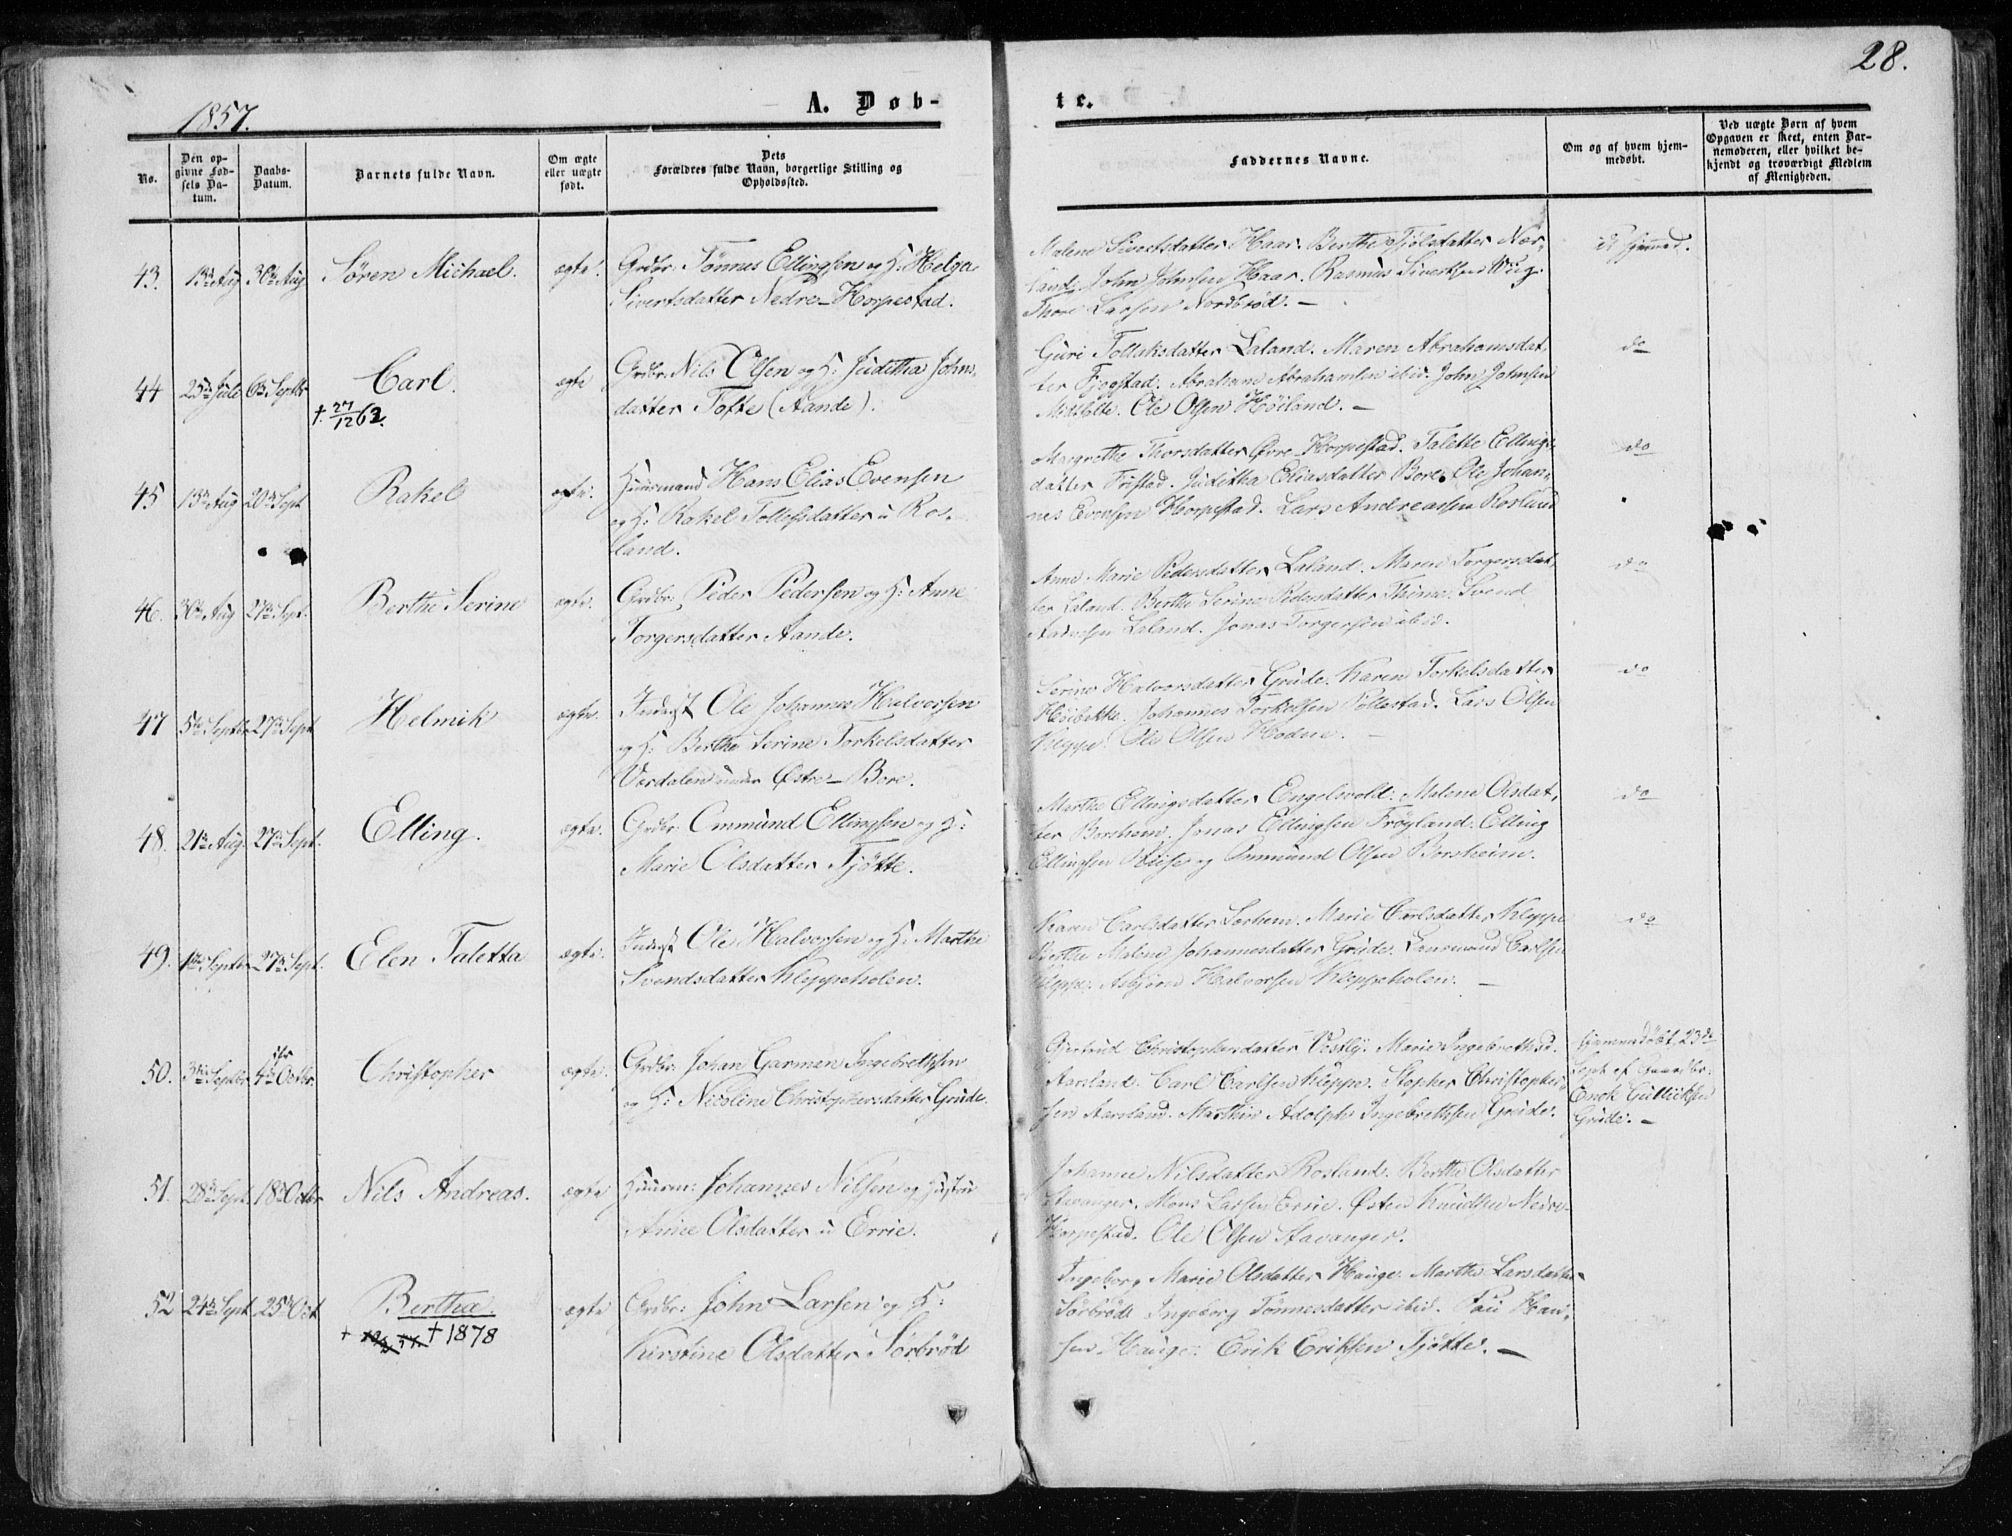 28.
1857.
A. Døb-
te.
No.
Den op-
givne Fød-
sels Da-
tum.
Daabs-
Datum.
Barnets fulde Navn.
Om ægte
eller uægte
født.
Dets
Forældres fulde Navn, borgerlige Stilling og
Opholdssted.
Faddernes Navne.
Om og af hvem hjem-
medøbt.
Ved uægte Børn af hvem
Opgaven er skeet, enten Bar-
nemoderen, eller hvilket be-
kjendt og troværdigt Medlem
af Menigheden.
43. 13de Aug 30te Aug Søren Michael. ægte. Grdbr: Tønnes Ellingsen og H: Helga
Sivertsdatter Nedre-Horpestad.
Malene Sivertsdatter Haar. Berthe Tjølsdatter Nær-
land. John Johnsen Haar. Rasmus Sivertsen
Thore Larsen Nordbrød. -
44 25de Jule 6te Septbr Carl. ægte Grdbr. Nils Olsen og H: Juditha Johns-
datter Tofte (Aande).
† 27/12 62.
Guri Tollaksdatter Laland. Maren Abrahamsdat-
ter Fjogstad. Abraham Abrahamsen ibid. John Johnsen
Ole Olsen Høiland. -
do
45 13de Aug 20de Sept Rakel ægte. Huusmand Hans Elias Evensen
og H: Rakel Tollefsdatter u Ros-
land.
Margrethe Thorsdatter Øvre-Horpestad. Talette Ellings-
datter Fristad. Juditha Eliasdatter Bore. Ole Johan-
nes Evensen Horpestad. Lars Andreassen Rosland
do
46. 30te Aug 27de Sept. Berthe Serine ægte. Grdbr: Peder Pedersen og H: Anne
Torgersdatter Aande.
Anne Marie Pedersdatter Laland. Maren Torgersdat-
ter Laland. Berthe Serine Pedersdatter Thime. Svend
Aadnesen Laland. Jonas Torgersen ibid.
do
47 5te Septbr 27de Sept Helmik ægte. Inderst Ole Johannes Halvorsen
og H: Berthe Serine Torkelsdatter
Verdalen under Østre-Bore.
Serine Halvorsdatter Grude. Karen Torkelsdatter
Johannes Torkelsen Pollestad. Lars Olsen
Kleppe. Ole Olsen Hodne. -
do
48. 21de Aug. 27de Sept. Elling. ægte. Grdbr: Ommund Ellingsen og H:
Marie Olsdatter Tjøtte.
Marthe Ellingsdatter Engelsvold. Malene Olsdat-
ter Borsheim. Jonas Ellingsen Frøyland. Elling
Ellingsen og Ommund Olsen Borsheim.
do
49. 1ste Septbr 27de Sept. Elen Taletta ægte. Inderst Ole Halvorsen og H: Marthe
Svendsdatter Kleppeholen.
Karen Carlsdatter Sørhem. Marie Carlsdatter Kleppe
Berthe Malene Johannesdatter Grude. Carlsen
Kleppe. Asbjørn Halvorsen Kleppeholen. -
do
50. 3die Septbr. 4de Octbr. Christopher ægte. Grdbr: Johan Garman Ingebrethsen
og H: Nicoline Christophersdatter Grude.
Gjertrud Christophersdatter Vestly. Marie Ingebrethsd.
Aarsland. Carl Carlsen Kleppe. Stopher Christopher-
sen Aarsland. Marthin Adolph Ingebrethsen Grude.
hjemmedøbt 23de
Sept af Gaardbr:
Enok Gulliksen
Grude. -
51. 28de Sept. 18de Octbr Nils Andreas. ægte Huusm: Johannes Nilsen og Hustru
Anne Olsdatter u Errie.
Johanne Nilsdatter Rosland. Berthe Olsdatter
Stavanger. Mons Larsen Errie. Østen Knudsen Nedre-
Horpestad. Ole Olsen Stavanger.
52 24de Sept. 25de Oct Bertha. ægte Grdbr: John Larsen og H:
Kirstine Olsdatter Sørbrød
† 1878
Ingeborg Marie Olsdatter Hauge. Marthe Larsdatter
Sørbrød. Ingeborg Tønnesdatter ibid. Pau Han-
sen Hauge. Erik Eriksen Tjøtte. -